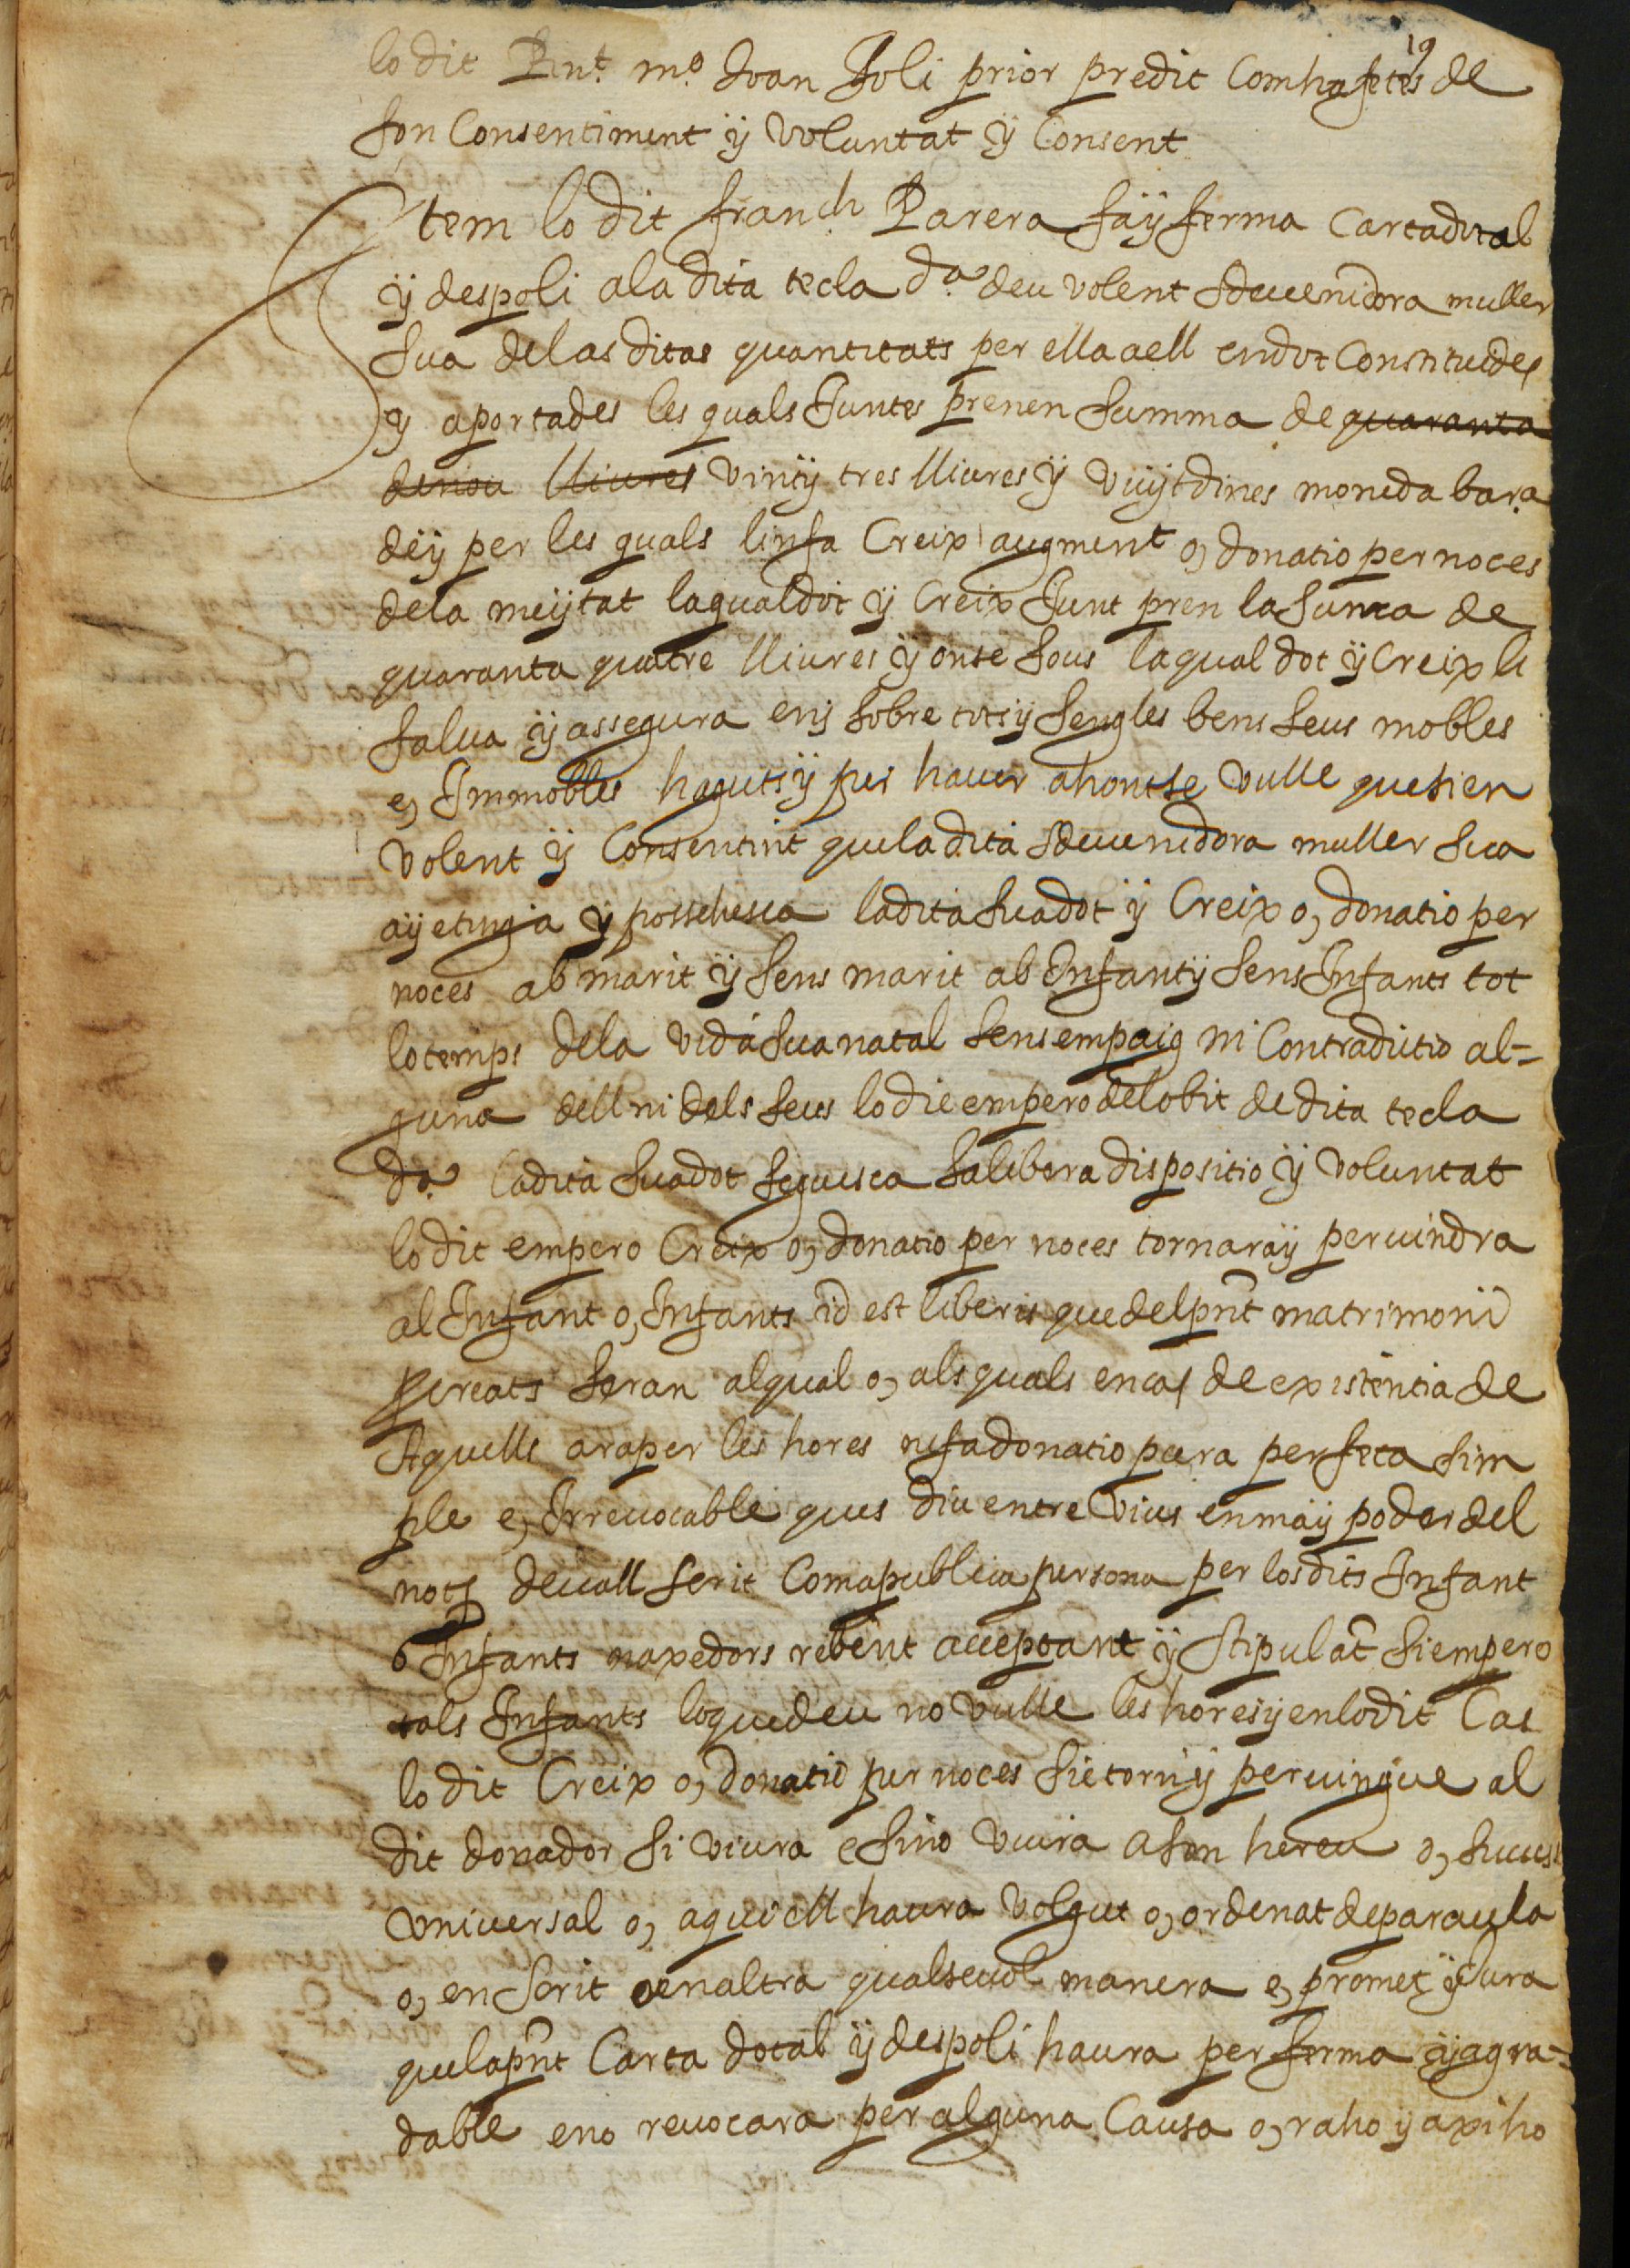 19
lo dit Rnt. mo. Joan Joli prior predit Com ha fetes de
son Consentiment ÿ Voluntat ÿ Consent
Item lo dit franch. Parera fa ÿ ferma Carta dotal
ÿ despoli a la dita tecla da. deu volent sdeuenidora muller
sua de las ditas quantitats per ella a ell en dot Constituides
y aportades les quals Juntes prenen summa de quaranta
denou lliures vint ÿ tres lliures ÿ vuÿt dines moneda bara.
de ÿ per les quals lin fa Creix augment o, donatio per noces
de la meÿtat la qual dot ÿ Creix Junt pren la suma de
quaranta quatre lliures ÿ onse sous la qual dot ÿ Creix li
salua ÿ assegura en ÿ sobre tots ÿ sengles bens seus mobles
e, Immobles haguts ÿ per hauer ahont se vulle que sien
Volent ÿ Consentint que la dita sdeuenidora muller sua
aÿe tinga ÿ possehesca la dita sua dot ÿ Creix o, donatio per
noces ab marit ÿ sens marit ab Infant ÿ sens Infants tot
lo temps de la vida sua natal sens empaig ni Contradictio al-
guna dell ni dels seus lo die empero del obit de dita tecla
da. la dita sua dot seguesca sa libera dispositio ÿ voluntat
lo dit empero Creix o, donatio per noces tornara ÿ peruindra
al Infant o, Infants id est liberis que del pnt matrimoni
pcreats seran al qual o, als quals en cas de existentia de
Aquells ara per les hores ne fa donatio pura perfeta sim
ple e, Irreuocable ques diu entre vius en ma ÿ poder del
noty deuall scrit Com a publica persona per los dits Infant
o Infants naxedors rebent acceptant ÿ stipulat si empero
tals Infants lo que deu no vulle les hores ÿ en lo dit Cas
lo dit Creix o, donatio per noces sie torn ÿ peruingue al
dit donador si viura e si no viura a son hereu o, success
vniuersal o, a qui ell haura volgut o, ordenat de paraula
o, en scrit o en altra qualseuol manera e, promet ÿ Jura
que la pnt Carta dotal ÿ despoli haura per ferma ÿ agra-
dable e no reuocara per alguna Causa o, raho ÿ axi ho